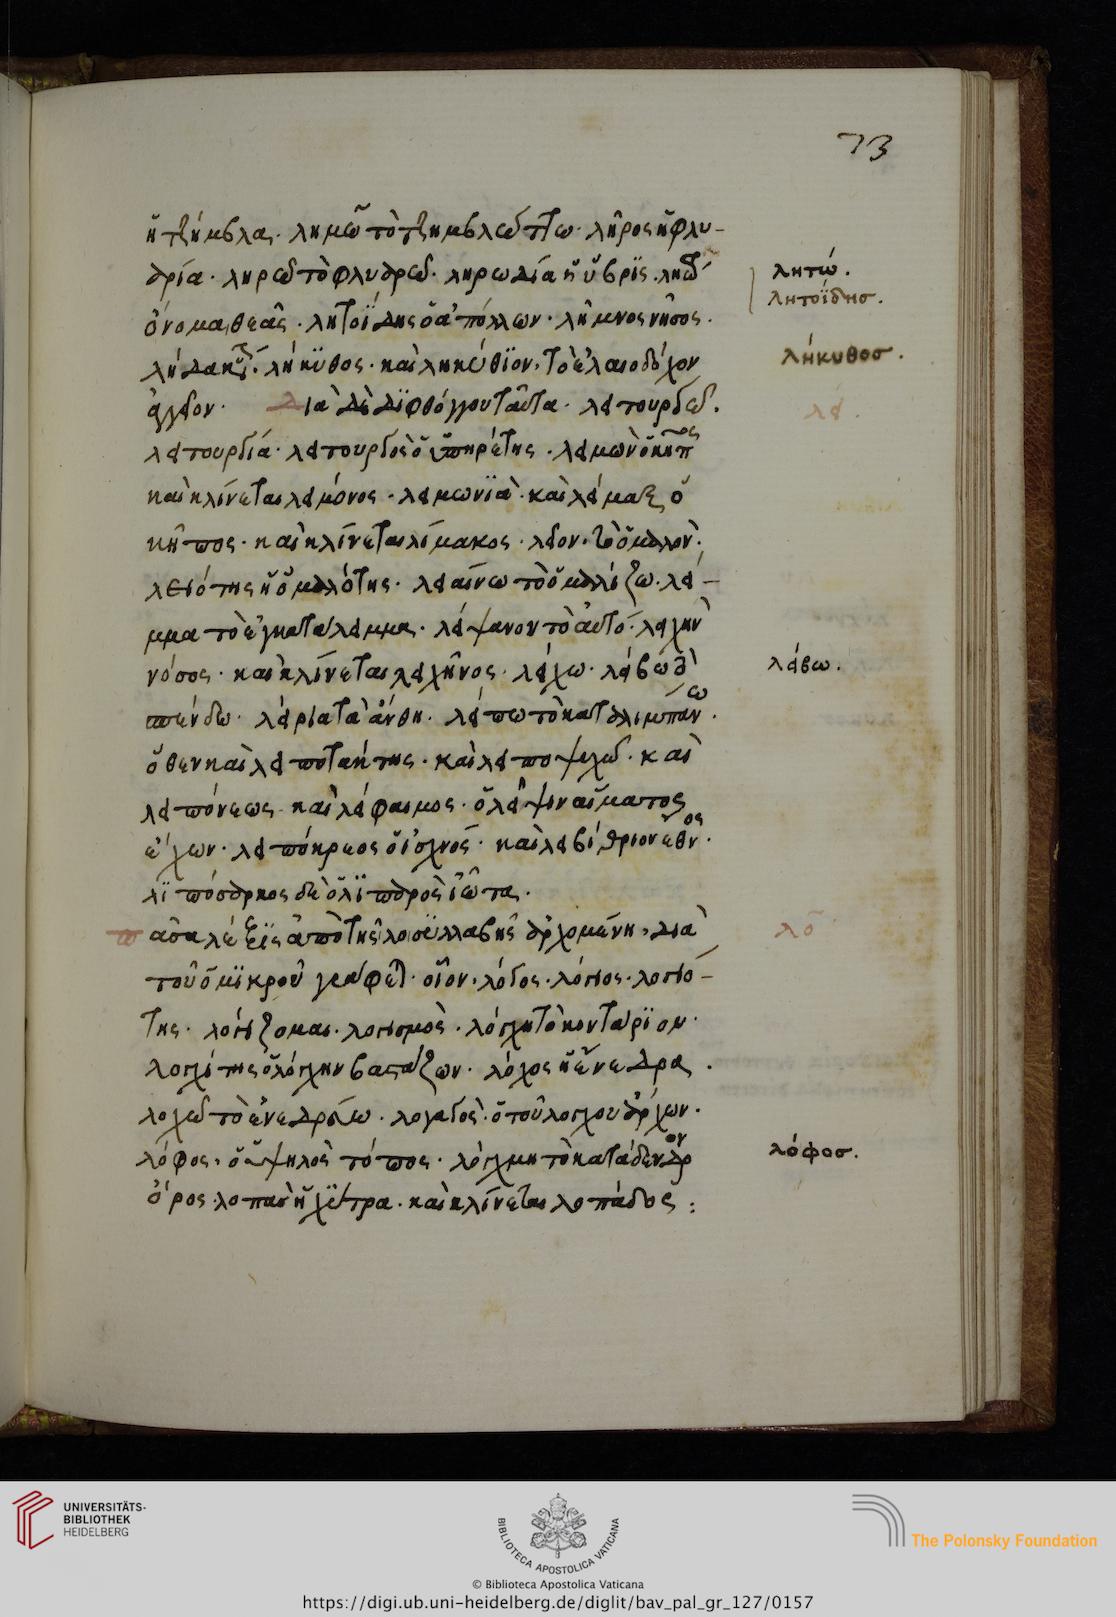 73
ἡ τζίμβλα. λημῶ τὸ τζημβλώττω. λῆρος ἡ φλυ-
αρία. ληρῶ τὸ φλυαρῶ. ληρωδία ἡ ὕβρϊς. λητώ
λητώ.
ὄνομα θεᾶς. λητοΐδης ὁ ἀπόλλων. λῆμνος νῆσος.
λητοΐδησ.
λήκϋθος. καὶ ληκύθϊον, τὸ ἐλαιοδόχον
λήκυθοσ.
ἀγγεῖον. Διὰ δὲ διφθόγγου ταῦτα. λειτουργῶ.
λεί.
λειτουργία. λειτουργὸς ὁ ὑπηρέτης. λειμὼν ὁ κῆπος
καὶ κλίνεται λειμόνος. λειμωνϊὰ. καὶ λείμαξ ὁ
κῆπος. καὶ κλίνεται λίμακος. λεῖον, τὸ ὁμαλὸν.
λειότης ἡ ὁμαλότης. λειαίνω τὸ ὁμαλίζω. λεί-
μμα τὸ ἐγκατάλειμμα. λείψανον τὸ αὐτό. λειχὴν
νόσος. καὶ κλίνεται λειχῆνος. λείχω. λείβω τὸ
λείβω.
σπένδω. λείρια τὰ ἄνθη. λείπω τὸ καταλιμπάνω.
ὅθεν καὶ λειποτάκτης. καὶ λειποψυχῶ. καὶ
λειπόνεως καὶ λείφαιμος. ὁ λεῖψιν αἵματος
ἔχων. λειπόκρεος ὁ ἰσχνός. καὶ λειβίθριον ἔθνος.
λϊπόσαρκος δὲ ὁ λϊπαρὸς ἰῶτα.
πᾶσα λέξϊς ἀπὸ τῆς λο συλλαβῆς ἀρχομένη, διὰ
λο
τοῦ ο μϊκροῦ γράφεται. οἷον, λόγος. λόγιος. λογιό-
της. λογίζομαι. λογισμὸς. λόγχη τὸ κοντάρϊον.
λογχίτης ὁ λόγχην βαστάζων. λόχος ἡ ἐνέδρα.
λοχῶ τὸ ἐνεδρεύω. λοχαγὸς. ὁ τοῦ λόχου ἄρχων.
λόφος, ὁ ὑψηλὸς τόπος. λόχμη τὸ κατάδενδρον
λόφοσ.
ὄρος. λοπὰς ἡ χύτρα. καὶ κλίνεται λοπάδος :
UNIVERSITÄTS-
BIBLIOTHEK
HEIDELBERG
BIBLIOTECA APOSTOLICA VATICANA
The Polonsky Foundation
© Biblioteca Apostolica Vaticana
https://digi.ub.uni-heidelberg.de/diglit/bav_pal_gr_127/0157